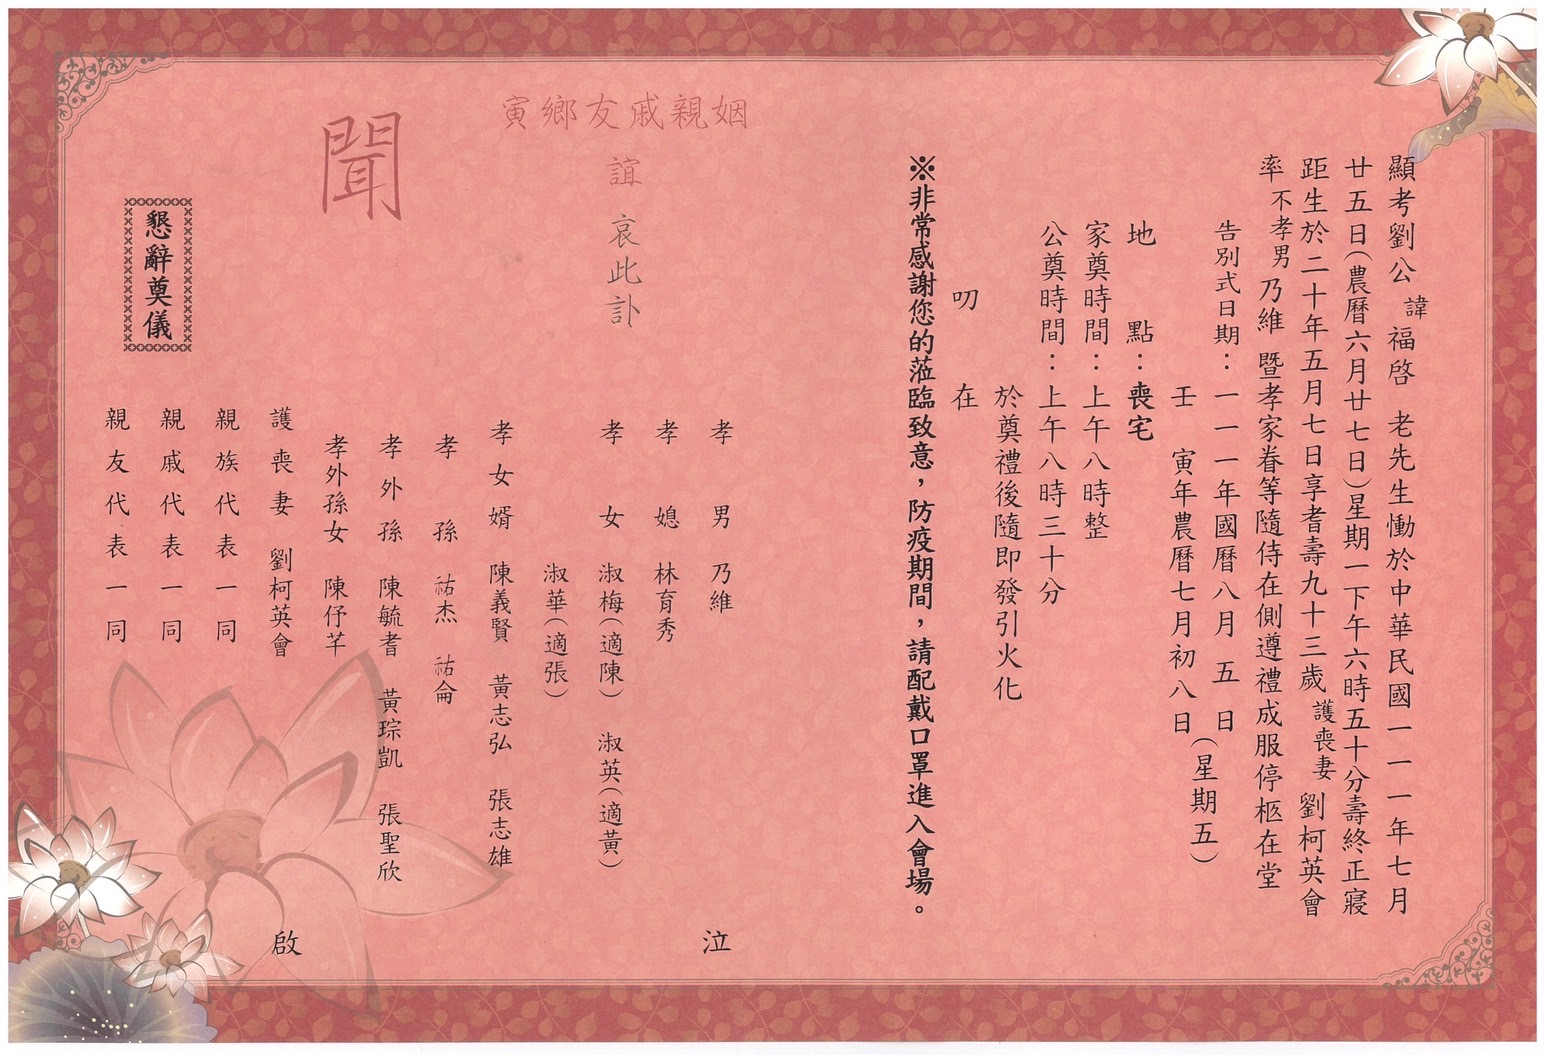 顯考劉公諱福啓 老先生慟於中華民國一一一年七月
廿五日(農曆六月廿七日)星期一下午六時五十分壽終正寢
距生於二十年五月七日享耆壽九十三歲護喪妻劉柯英會
率不孝男乃維 暨孝家眷等隨侍在側遵禮成服停柩在堂
告別式日期：一一一年國曆八月五日
壬寅年農曆七月初八日(星期五)
地點：喪宅
家奠時間：上午八時整
公奠時間：上午八時三十分
於奠禮後隨即發引火化
叨在
※非常感謝您的蒞臨致意，防疫期間，請配戴口罩進入會場。
寅鄉友戚親姻
誼
哀此訃
聞
孝男 乃維
孝媳 林育秀
孝女 淑梅(適陳) 淑英(適黃)
淑華(適張)
孝女婿 陳義賢 黃志弘 張志雄
孝孫 祐杰 祐侖
孝外孫 陳毓耆 黃琮凱 張聖欣
孝外孫女 陳伃芊
護喪妻 劉柯英會
親族代表一同
親戚代表一同
親友代表一同
泣
啟
懇辭奠儀